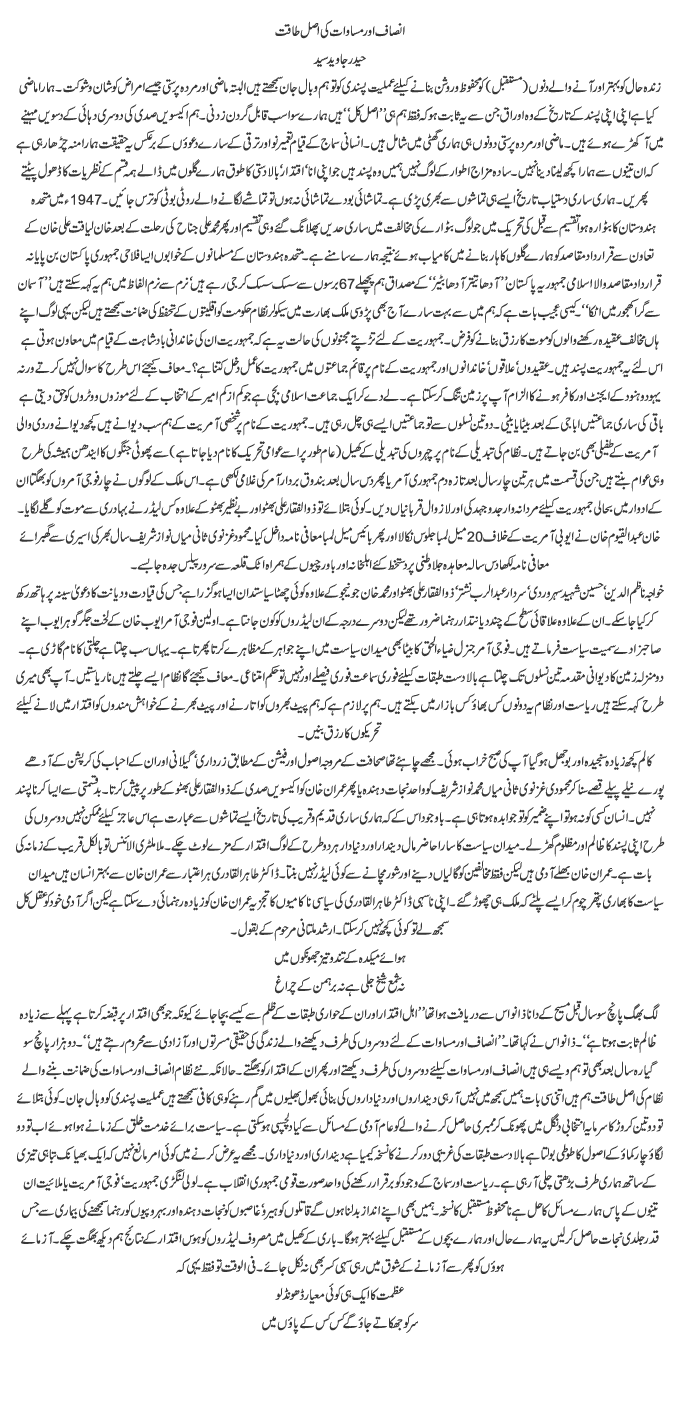 انصاف اور مساوات کی اصل طاقت
حیدر جاوید سید
زندہ حال کو بہتر اور آنے والے دنوں (مستقبل) کو محفوظ و روشن بنانے کیلئے عملیت پسندی کو تو ہم وبال جان سمجھتے ہیں البتہ ماضی اور مردہ پرستی جیسے امراض کو شان و شوکت۔ ہمارا ماضی
کیا ہے اپنی اپنی پسند کے تاریخ کے وہ اوراق جن سے یہ ثابت ہو کہ فقط ہم ہی ’’اصل کل‘‘ ہیں ہمارے سوا سب قابل گردن زدنی۔ ہم اکیسویں صدی کی دوسری دہائی کے دسویں مہینے
میں آکھڑے ہوئے ہیں۔ ماضی اور مردہ پرستی دونوں ہی ہماری گھٹی میں شامل ہیں۔ انسانی سماج کے قیام‘ تعمیر نو اور ترقی کے سارے دعوؤں کے برعکس یہ حقیقت ہمارا منہ چڑھا رہی ہے
کہ ان تینوں سے ہمارا کچھ لینا دینا نہیں۔ سادہ مزاج اطوار کے لوگ نہیں ہمیں وہ پسند ہیں جو اپنی انا‘ اقتدار‘ بالادستی کا طوق ہمارے گلوں میں ڈالے ہمہ قسم کے نظریات کا ڈھول پیٹتے
پھریں۔ ہماری ساری دستیاب تاریخ ایسے ہی تماشوں سے بھری پڑی ہے۔ تماشائی بودے تماشائی نہ ہوں تو تماشے لگانے والے روٹی بوٹی کو ترس جائیں۔ 1947ء میں متحدہ
ہندوستان کا بٹوارہ ہوا تقسیم سے قبل کی تحریک میں جو لوگ بٹوارے کی مخالفت میں ساری حدیں پھلانگ گئے وہی تقسیم اور پھر محمد علی جناح کی رحلت کے بعد خان لیاقت علی خان کے
تعاون سے قرارداد مقاصد کو ہمارے گلوں کا ہار بنانے میں کامیاب ہوئے نتیجہ ہمارے سامنے ہے۔ متحدہ ہندوستان کے مسلمانوں کے خوابوں ایسا فلاحی جمہوری پاکستان بن پایا نہ
قرارداد مقاصد والا اسلامی جمہوریہ پاکستان ’’آدھا تیتر آدھا بٹیر‘‘ کے مصداق ہم پچھلے 67 برسوں سے سسک سسک کر جی رہے ہیں‘ نرم سے نرم الفاظ میں ہم یہ کہہ سکتے ہیں ’’آسمان
سے گرا کھجور میں اٹکا‘‘۔ کیسی عجیب بات ہے کہ ہم میں سے بہت سارے آج بھی پڑوسی ملک بھارت میں سیکولر نظام حکومت کو اقلیتوں کے تحفظ کی ضمانت سمجھتے ہیں لیکن یہی لوگ اپنے
ہاں مخالف عقیدہ رکھنے والوں کو موت کا رزق بنانے کو فرض۔ جمہوریت کے لئے تڑپتے مجنونوں کی حالت یہ ہے کہ جمہوریت ان کی خاندانی بادشاہت کے قیام میں معاون ہوتی ہے
اس لئے یہ جمہوریت پسند ہیں۔ عقیدوں‘ علاقوں‘ خاندانوں اور جمہوریت کے نام پر قائم جماعتوں میں جمہوریت کا عمل دخل کتنا ہے؟۔ معاف کیجئے اس طرح کا سوال نہیں کرتے ورنہ
یہود و ہنود کے ایجنٹ اور کافر ہونے کا الزام آپ پر زمین تنگ کر سکتا ہے۔ لے دے کر ایک جماعت اسلامی بچی ہے جو کم از کم امیر کے انتخاب کے لئے موزوں ووٹروں کو حق دیتی ہے
باقی کی ساری جماعتیں اباجی کے بعد بیٹا یا بیٹی۔ دو تین نسلوں سے تو جماعتیں ایسے ہی چل رہی ہیں۔ جمہوریت کے نام پر شخصی آمریت کے ہم سب دیوانے ہیں کچھ دیوانے وردی والی
آمریت کے طفیلی بھی بن جاتے ہیں۔ نظام کی تبدیلی کے نام پر چہروں کی تبدیلی کے کھیل (عام طور پر اسے عوامی تحریک کا نام دیا جاتا ہے) سے پھوٹی جنگوں کا ایندھن ہمیشہ کی طرح
وہی عوام بنتے ہیں جن کی قسمت میں ہر تین چار سال بعد تازہ دم جمہوری آمر یا پھر دس سال بعد بندوق بردار آمر کی غلامی لکھی ہے۔ اس ملک کے لوگوں نے چار فوجی آمروں کو بھگتا ان
کے ادوار میں بحالی جمہوریت کیلئے مردانہ وار جدوجہد کی اور لازوال قربانیاں دیں۔ کوئی بتلائے تو ذوالفقار علی بھٹو اور بے نظیر بھٹو کے علاوہ کس لیڈر نے بہادری سے موت کو گلے لگایا۔
خان عبدالقیوم خان نے ایوبی آمریت کے خلاف 20 میل لمبا جلوس نکالا اور پھر بائیس میل لمبا معافی نامہ داخل کیا۔ محمود غزنوی ثانی میاں نواز شریف سال بھر کی اسیری سے گھبرائے
معافی نامہ لکھا دس سالہ معاہدہ جلاوطنی پر دستخط کئے اہلخانہ اور باورچیوں کے ہمراہ اٹک قلعہ سے سرور پیلس جدہ جابسے۔
خواجہ ناظم الدین‘ حسین شہید سہروردی‘ سردار عبدالرب نشتر‘ ذوالفقار علی بھٹو اور محمد خان جونیجو کے علاوہ کوئی چھٹا سیاستدان ایسا ہو گزرا ہے جس کی قیادت و دیانت کا دعویٰ سینہ پر ہاتھ رکھ
کر کیا جاسکے۔ ان کے علاوہ علاقائی سطح کے چند دیانتدار رہنما ضرور تھے لیکن دوسرے درجہ کے ان لیڈروں کو کون جانتا ہے۔ اولین فوجی آمر ایوب خان کے لخت جگر گوہر ایوب اپنے
صاحبزادے سمیت سیاست فرماتے ہیں۔ فوجی آمر جنرل ضیاء الحق کا بیٹا بھی میدان سیاست میں اپنے جواہر کے مظاہرے کرتا پھرتا ہے۔ یہاں سب چلتا ہے چلتی کا نام گاڑی ہے۔
دو منزلہ زمین کا دیوانی مقدمہ تین نسلوں تک چلتا ہے بالادست طبقات کیلئے فوری سماعت فوری فیصلے اور نہیں تو حکم امتناعی۔ معاف کیجئے گا نظام ایسے چلتے ہیں نا ریاستیں۔ آپ بھی میری
طرح کہہ سکتے ہیں ریاست اور نظام یہ دونوں کس بھاؤ کس بازار میں بکتے ہیں۔ ہم پر لازم ہے کہ ہم پیٹ بھروں کو اتارنے اور پیٹ بھرنے کے خواہش مندوں کو اقتدار میں لانے کیلئے
تحریکوں کا رزق بنیں۔
کالم کچھ زیادہ سنجیدہ اور بوجھل ہوگیا آپ کی صبح خراب ہوئی۔ مجھے چاہئے تھا صحافت کے مروجہ اصول اور فیشن کے مطابق زرداری‘ گیلانی اور ان کے احباب کی کرپشن کے آدھے
پورے نیلے پیلے قصے سنا کر محمودی غزنوی ثانی میاں محمد نواز شریف کو واحد نجات دہندہ یا پھر عمران خان کو اکیسویں صدی کے ذوالفقار علی بھٹو کے طور پر پیش کرتا۔ بدقسمتی سے ایسا کرنا پسند
نہیں۔ انسان کسی کو نہ ہو تو اپنے ضمیر کو تو جوابدہ ہوتا ہی ہے۔ باوجود اس کے کہ ہماری ساری قدیم و قریب کی تاریخ ایسے تماشوں سے عبارت ہے اس عاجز کیلئے ممکن نہیں دوسروں کی
طرح اپنی پسند کا ظالم اور مظلوم گھڑ لے۔ میدان سیاست کا سارا حاضر مال دیندار اور دنیا دار ہر دو طرح کے لوگ اقتدار کے مزے لوٹ چکے۔ ملا ملٹری الائنس تو بالکل قریب کے زمانہ کی
بات ہے۔ عمران خان بھلے آدمی ہیں لیکن فقط مخالفین کو گالیاں دینے اور شور مچانے سے کوئی لیڈر نہیں بنتا۔ ڈاکٹر طاہر القادری ہر اعتبار سے عمران خان سے بہتر انسان ہیں میدان
سیاست کا بھاری پتھر چوم کر ایسے پلٹے کہ ملک ہی چھوڑ گئے۔ اپنی نا سہی ڈاکٹر طاہر القادری کی سیاسی ناکامیوں کا تجزیہ عمران خان کو زیادہ رہنمائی دے سکتا ہے لیکن اگر آدمی خود کو عقل کل
سمجھ لے تو کوئی کچھ نہیں کر سکتا۔ ارشد ملتانی مرحوم کے بقول۔
ہوائے میکدہ کے تند و تیز جھونکوں میں
نہ شمع شیخ جلی ہے نہ برہمن کے چراغ
لگ بھگ پانچ سو سال قبل مسیح کے دانا ذانو اس سے دریافت ہوا تھا ’’اہل اقتدار اور ان کے حواری طبقات کے ظلم سے کیسے بچا جائے کیونکہ جو بھی اقتدار پر قبضہ کرتا ہے پہلے سے زیادہ
ظالم ثابت ہوتا ہے‘‘۔ ذانو اس نے کہا تھا۔ ’’انصاف اور مساوات کے لئے دوسروں کی طرف دیکھنے والے زندگی کی حقیقی مسرتوں اور آزادی سے محروم رہتے ہیں‘‘۔ دو ہزار پانچ سو
گیارہ سال بعد بھی تو ہم ویسے ہی ہیں انصاف اور مساوات کیلئے دوسروں کی طرف دیکھتے اور پھر ان کے اقتدار کو بھگتے۔ حالانکہ نئے نظام انصاف اور مساوات کی ضمانت بننے والے
نظام کی اصل طاقت ہم ہیں اتنی سی بات ہمیں سمجھ میں نہیں آرہی دینداروں اور دنیاداروں کی بنائی بھول بھلیوں میں گم رہنے کو ہی کافی سمجھتے ہیں عملیت پسندی کو وبال جان۔ کوئی بتلائے
تو دو تین کروڑ کا سرمایہ انتخابی دنگل میں پھونک کر ممبری حاصل کرنے والے کو عام آدمی کے مسائل سے کیا دلچسپی ہوسکتی ہے۔ سیاست برائے خدمت خلق کے زمانے ہوا ہوئے اب تو دو
لگاؤ چار کماؤ کے اصول کا طوطی بولتا ہے بالادست طبقات کی غریبی دور کرنے کا نسخہ کیمیا ہے دینداری اور دنیاداری۔ مجھے یہ عرض کرنے میں کوئی امر مانع نہیں کہ ایک بھیانک تباہی تیزی
کے ساتھ ہماری طرف بڑھتی چلی آرہی ہے۔ ریاست اور سماج کے وجود کو برقرار رکھنے کی واحد صورت قومی جمہوری انقلاب ہے۔ لولی لنگڑی جمہوریت‘ فوجی آمریت یا ملائیت ان
تینوں کے پاس ہمارے مسائل کا حل ہے نا محفوظ مستقبل کا نسخہ۔ ہمیں بھی اپنے انداز بدلنا ہوں گے قاتلوں کو ہیرو‘ غاصبوں کو نجات دہندہ اور بہروپیوں کو رہنما سمجھنے کی بیماری سے جس
قدر جلدی نجات حاصل کرلیں یہ ہمارے حال اور ہمارے بچوں کے مستقبل کیلئے بہتر ہوگا۔ باری کے کھیل میں مصروف لیڈروں کو ہوس اقتدار کے نتائج ہم دیکھ بھگت چکے۔ آزمائے
ہوؤں کو پھر سے آزمانے کے شوق میں رہی سہی کسر بھی نہ نکل جائے۔ فی الوقت تو فقط یہی کہ
عظمت کا ایک ہی کوئی معیار ڈھونڈ لو
سر کو جھکاتے جاؤ گے کس کس کے پاؤں میں